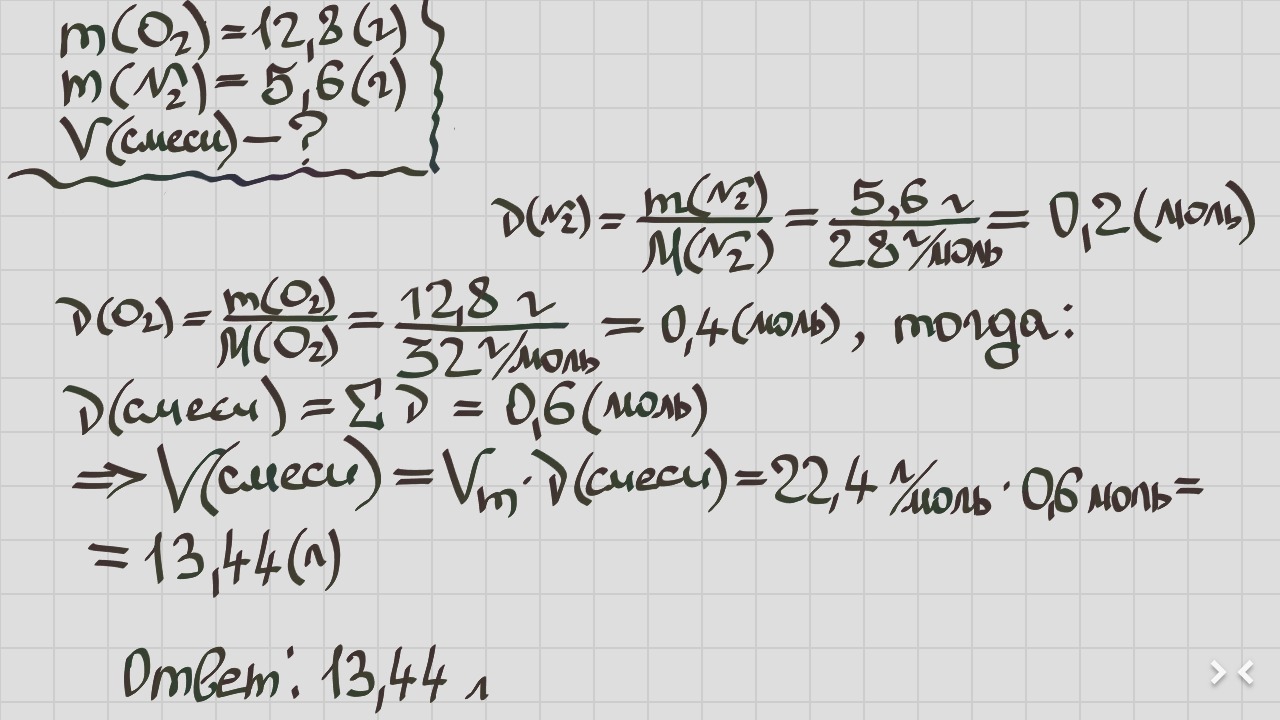 m(O₂) = 12,8 (г)
m(N₂) = 5,6 (г)
V(смеси) – ?
ν(N₂) = m(N₂)/M(N₂) = 5,6 г/28 г/моль = 0,2 (моль)
ν(O₂) = m(O₂)/M(O₂) = 12,8 г/32 г/моль = 0,4 (моль), тогда:
ν(смеси) = Σ ν = 0,6 (моль)
⇒ V(смеси) = Vm · ν(смеси) = 22,4 л/моль · 0,6 моль =
= 13,44 (л)
Ответ: 13,44 л